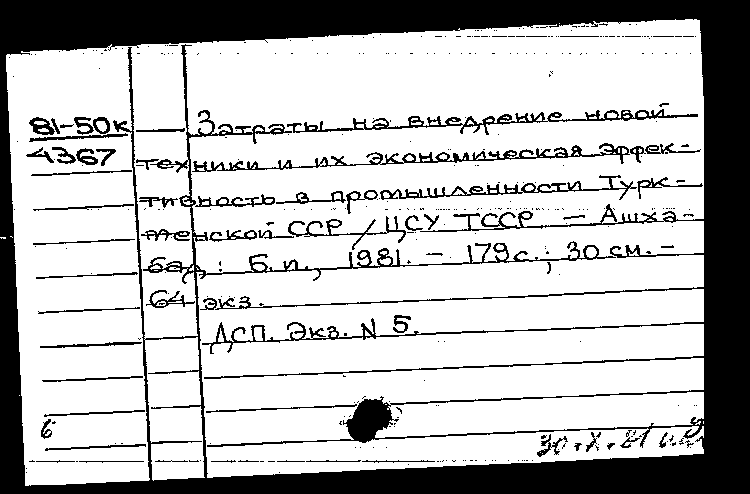 81-50к
4367
Затраты на внедрение новой
техники и их экономическая эффек-
тивность в промышленности Турк-
менской ССР / ЦСУ ТССР — Ашха-
бад: Б.и., 1981. - 179с.; 30 см. -
64 экз.
ДСП. Экз. N 5.
6
30.X.81